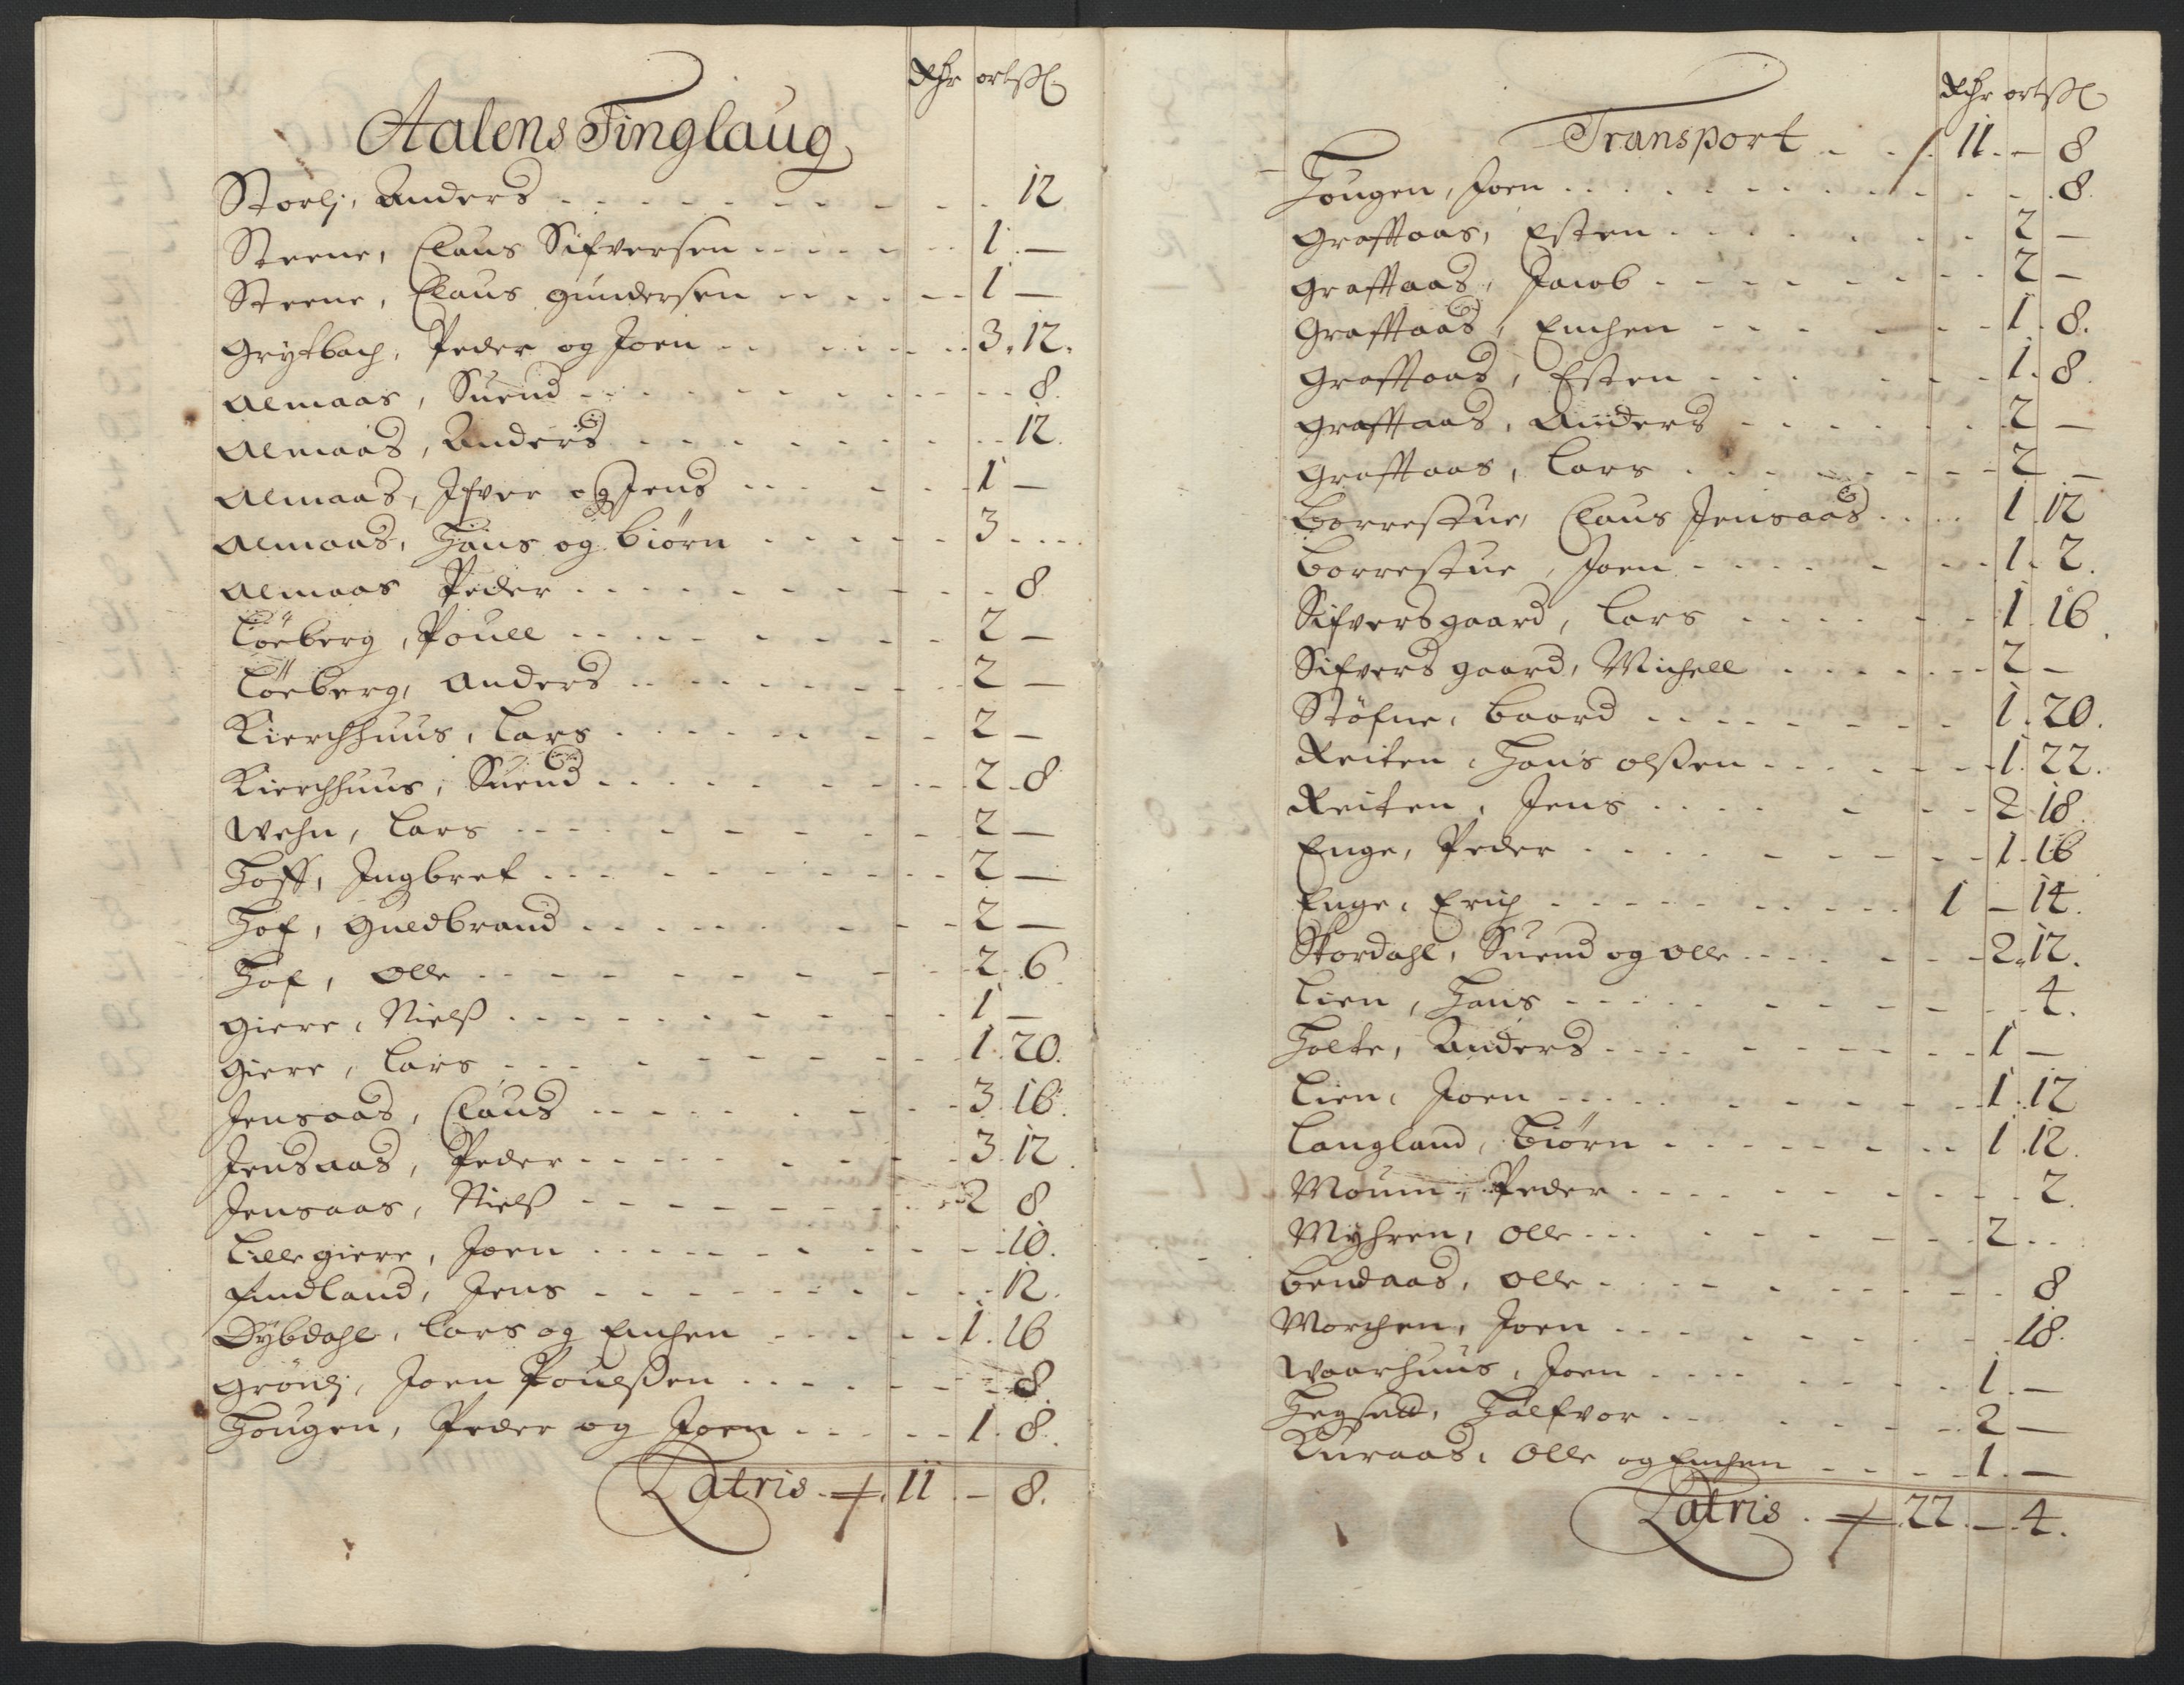 Rdr ort ẞ
Aalens Tinglaug
Storlj, Anders - - - - 12
Steene, Claus Sifversen - - - - 1 —
Steene, Claus Gundersen - - - - 1 —
Grytbach, Peder og Joen - - - - 3. 12.
Almaas, Suend - - - - 8.
Almaas, Anders - - - - 12.
Almaas, Ifver og Jens - - - - 1 —
Almaas, Hans og Biörn - - - - 3 - - -
Almaas Peder - - - - 8
Löeberg, Pouell - - - - 2 —
Löeberg, Anders - - - - 2 —
Kierchhuus, Lars - - - - 2 —
Kierchhuus, Suend - - - - 2. 8
Wehn, Lars - - - - 2 —
Hoff, Ingbret - - - - 2 —
Hof, Guedbrand - - - - 2 —
Hof, Olle - - - - 2. 6
Giere, Nielß - - - - 1 —
Giere, Lars - - - - 1. 20.
Jensaas, Claus - - - - 3. 16.
Jensaas, Peder - - - - 3. 12.
Jensaas, Nielß - - - - 2 8
Lille giere, Joen - - - - 10.
Findland, Jens - - - - 12.
Dybdahl, Lars og Enchen - - - - 1. 16
Grönlj, Joen Pouelßen - - - - 8.
Hougen, Peder og Joen - - - - 1. 8.
Latris - 11 — 8.
Rdr ort ẞ
Transport - - 11. — 8
Hougen, Joen - - - - 8.
Graffaas, Esten - - - - 2 —
Graffaas, Jacob - - - - 2 —
Graffaas, Enchen - - - - 1. 8.
Graffaas, Esten - - - - 1. 8.
Graffaas, Anders - - - - 2 —
Graffaas, Lars - - - - 2 —
Borrestue, Claus Jensaas - - - - 1. 12
Borrestue, Joen - - - - 1. 2.
Sifversgaard, Lars - - - - 1 16.
Sifversgaard, Michell - - - - 2 —
Stöfne, Baard - - - - 1. 20.
Reiten, Hans Olßen - - - - 1. 22.
Reiten, Jens - - - - 2 18.
Enge, Peder - - - - 1. 16
Enge, Erich - - - - 1 — 14.
Stordahl, Suend og Olle - - - - 2. 12.
Lien, Hans - - - - 4.
Holte, Anders - - - - 1 —
Lien, Joen - - - - 1. 12
Langland, Biörn - - - - 1. 12.
Moum, Peder - - - - 2.
Myhren, Olle - - - - 2 - -
Bendaas, Olle - - - - 8
Morchen, Joen - - - - 18.
Waarhuus, Joen - - - - 1. —
Hegset, Halfvor - - - - 2 —
Kuraas, Olle og Enchen - - - - 1. —
Latris. 22. — 4.